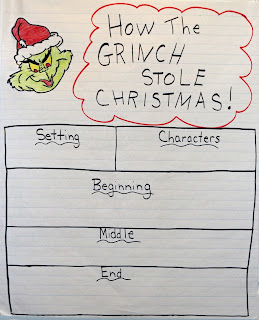 How The
GRINCH
STOLE
CHRISTMAS!
Setting
Characters
Beginning
Middle
End